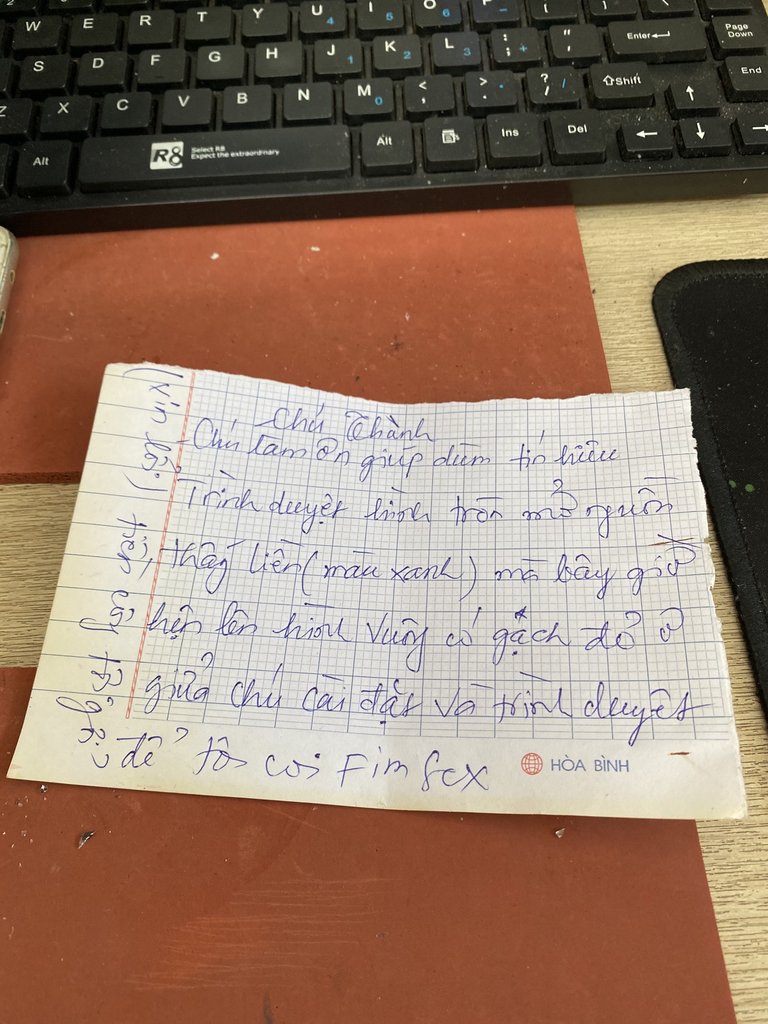 W E R T Y U 4 I 5 O 6 P -
S D F G H J 1 K 2 L 3 : ; + " ' Enter Page Down
Z X C V B N M 0 < , > . ? / Shift ↑ End
Alt R8 Select R8 Alt Ins Del ← ↓ →
Expect the extraordinary
Chú Thành
Chú làm ơn giúp dùm tín hiêu
Trình duyệt hình tròn mở nguồn
thấy liền (màu xanh) mà bây giờ
hiện lên hình vuông có gạch đỏ ở
giửa chú cài đặt và trình duyệt
để tôi coi Fim sex
HÒA BÌNH
(xin lỗi) tiền cây tôi gửi